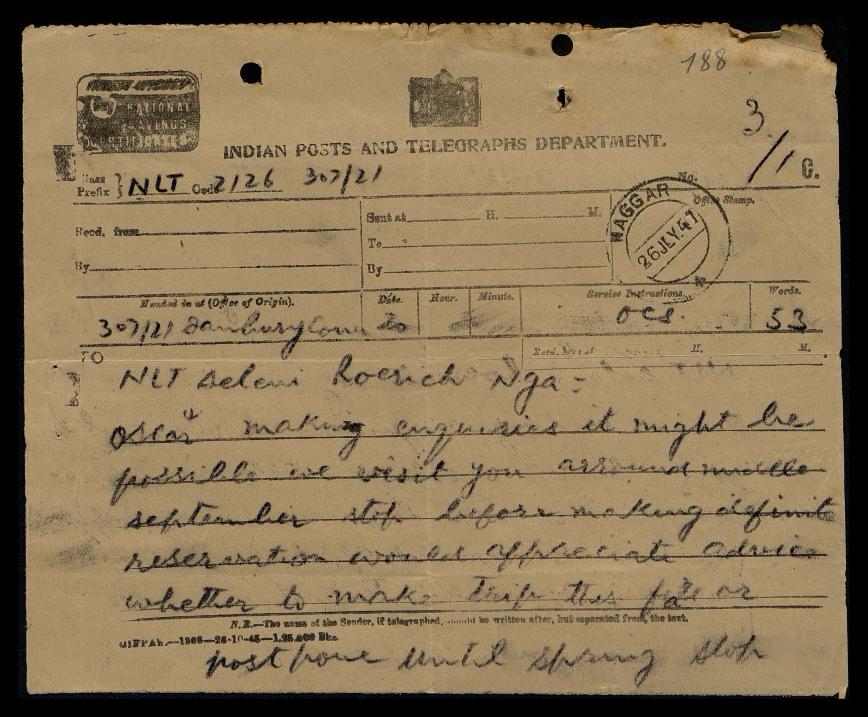 188
NATIONAL
SAVINGS
CERTIFICATES
3
/1
INDIAN POSTS AND TELEGRAPHS DEPARTMENT.
C.
Class
Prefix } NLT Code 2126 307/21
No.
Office Stamp.
NAGGAR
26 JLY. 47
Recd. from
Sent at H. M.
To
By
By
Handed in at (Office of Origin).
Date.
Hour.
Minute.
Service Instructions.
Words.
307/21 Danbury Conn 20
ocs.
53
TO
Recd. here at H. M.
NLT Roerich Nga =
making enquiries it might be
possible we visit you arround middle
september stop before making definite
reservation would appreciate advice
whether to make trip this fall or
N.B.—The name of the Sender, if telegraphed, should be written after, but separated from, the text.
—1266—26-10-45—1,25,000 Bks.
postpone until spring stop